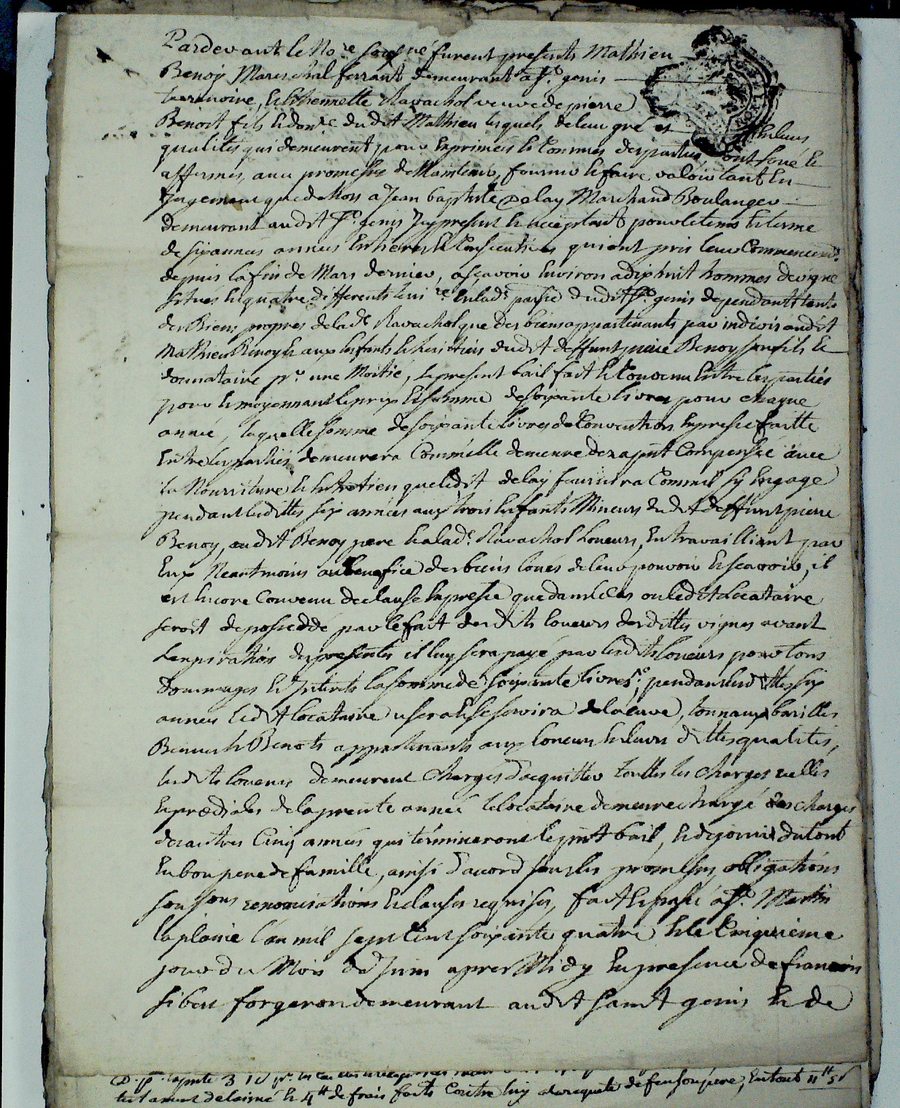 Pardevant le No.re soug.né furent presents Mathieu
Benoy Mareschal ferrant demeurant a S.t genis
terrenoire, et Ethiennette Ravachol veuve de pierre
Benoit fils et don.re dudit Mathieu lesquels de leur gré et leurs
qualités qui demeurent pour exprimées et comme des parties ont loué et
affermés avec promesse de Maintenir, fournir et faire valoir tant En
Jugement que dehors a Jean baptiste Delay Marchand Boulanger
demeurant audit S.t genis Icy present et acceptant pour le tems et terme
de six années années Entieres et Consecutives qui ont pris leur Commencem.t
depuis la fin de Mars dernier, ascavoir Environ a dix huit hommes de vigne
situes en quatre differents ten.res En lad.e parroisse dudit S.t genis dependants tant
des Biens propres de lad.e Ravachol que des biens appartenants par indivis audit
Mathieu Benoy et aux Enfants et heritiers dudit deffunt pierre Benoy son fils et
donnataire p.r une Moitié, le present bail fait et Convenu Entre les parties
pour et moyennant le prix et somme de soixante livres pour chaque
année, laquelle somme de soixante livres de Convention Expresse faitte
Entre les parties demeurera Comme elle demeure dez a pnt Compensée avec
la Nourriture et Entretien que ledit delay fournira Comme il s'y Engage
pendant lesdittes six années aux trois Enfants Mineurs dudit deffunt pierre
Benoy, audit Benoy pere et a lad.e Ravachol Loueurs, En travailliant par
Eux Neantmoins au benefice des biens loués de leur pouvoir et scavoir, il
est Encore Convenu de clause Expresse que dans le Cas ou ledit Locataire
seroit depossedde par le fait desdits loueurs desdittes vignes avant
L'expiration des presentes il luy sera payé par lesdits Loueurs pour tous
dommages et Interets la somme de soixante livres, pendant lesdittes six
années ledit locataire usera et se servira de la cuve, tonneaux barilles
Bennes et Benots appartenants aux loueurs et leurs dittes qualités,
lesdits loueurs demeurent Chargés d'acquitter touttes les charges réelles
et prædiales de la presente année et le locataire demeure chargé des charges
des autres Cinq années qui termineront le pnt bail, et de jouir du tout
En bon pere de famille, ainsi d'accord sous les promesses obligations
soussons renonciations et clauses requises, fait et passé a S.t Martin
la plaine l'an mil sept Cent soixante quatre et le Cinquieme
jour du Mois de Juin apres Midy En presence de francois
sibert forgeron demeurant audit saint genis et de
testament de laimé et 4# de frais faits Contre luy a la requete de feu son pere, En tout 11# 5s